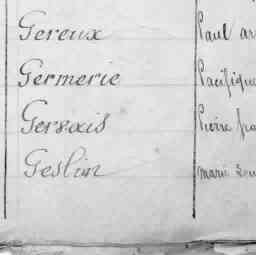 Gereux Paul
Germerie Pacifique
Gervais
Geslin marie